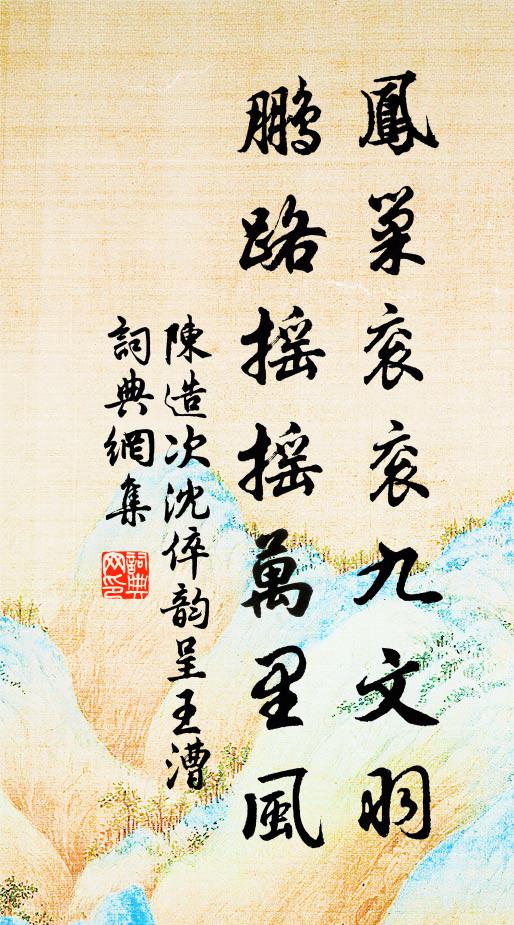 鳳巢衮衮九文羽
鵬路搖搖萬里風
陳造次沈倅韵呈王漕
詞典網集
詞典
网印